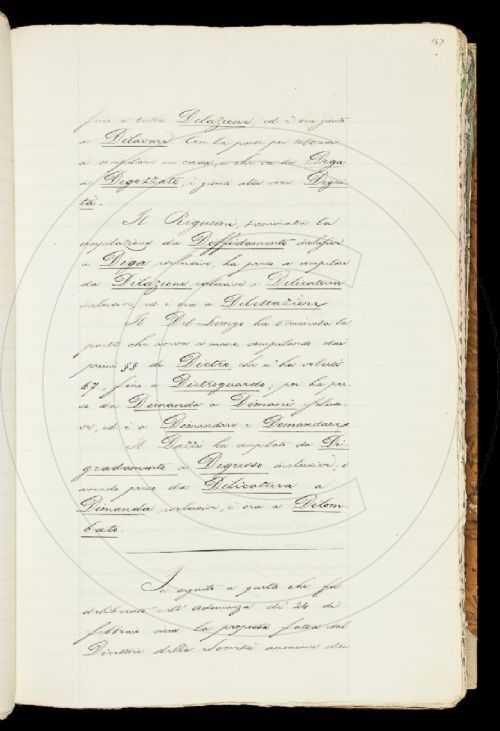 137
fino a tutto Delazione, ed è ora giunto
a Dilavare. Con la parte per lettera
a compilare in casa, e che va da Dega
a Degozzato, è giunto alla voce Degni-
tà.
Il Rigutini, terminata la
compilazione da Deffidamento inclusive
a Dega inclusive, ha preso a compilare
da Dilazione inclusive a Delicatura
inclusive, ed è ora a Dilettazione
Il Del-Lungo ha terminata la
parte che aveva a mano compilando dai
primi §§ di Dietro che n'ha veduti
67, fino a Dietroguardo; poi ha pre-
so da Dimanda a Dimani inclusi-
ve, ed è a Dimandare e Domandare
Il Dazzi ha compilato da Di-
gradamento a Degresso inclusive, e
avendo preso da Delicatura a
Dimanda inclusive, è ora a Dilom-
bato.
In seguito a quello che fu
deliberato nell'Adunanza de' 24 di
febbraio circa la proposta fatta dal
Direttore della Società anonima dei